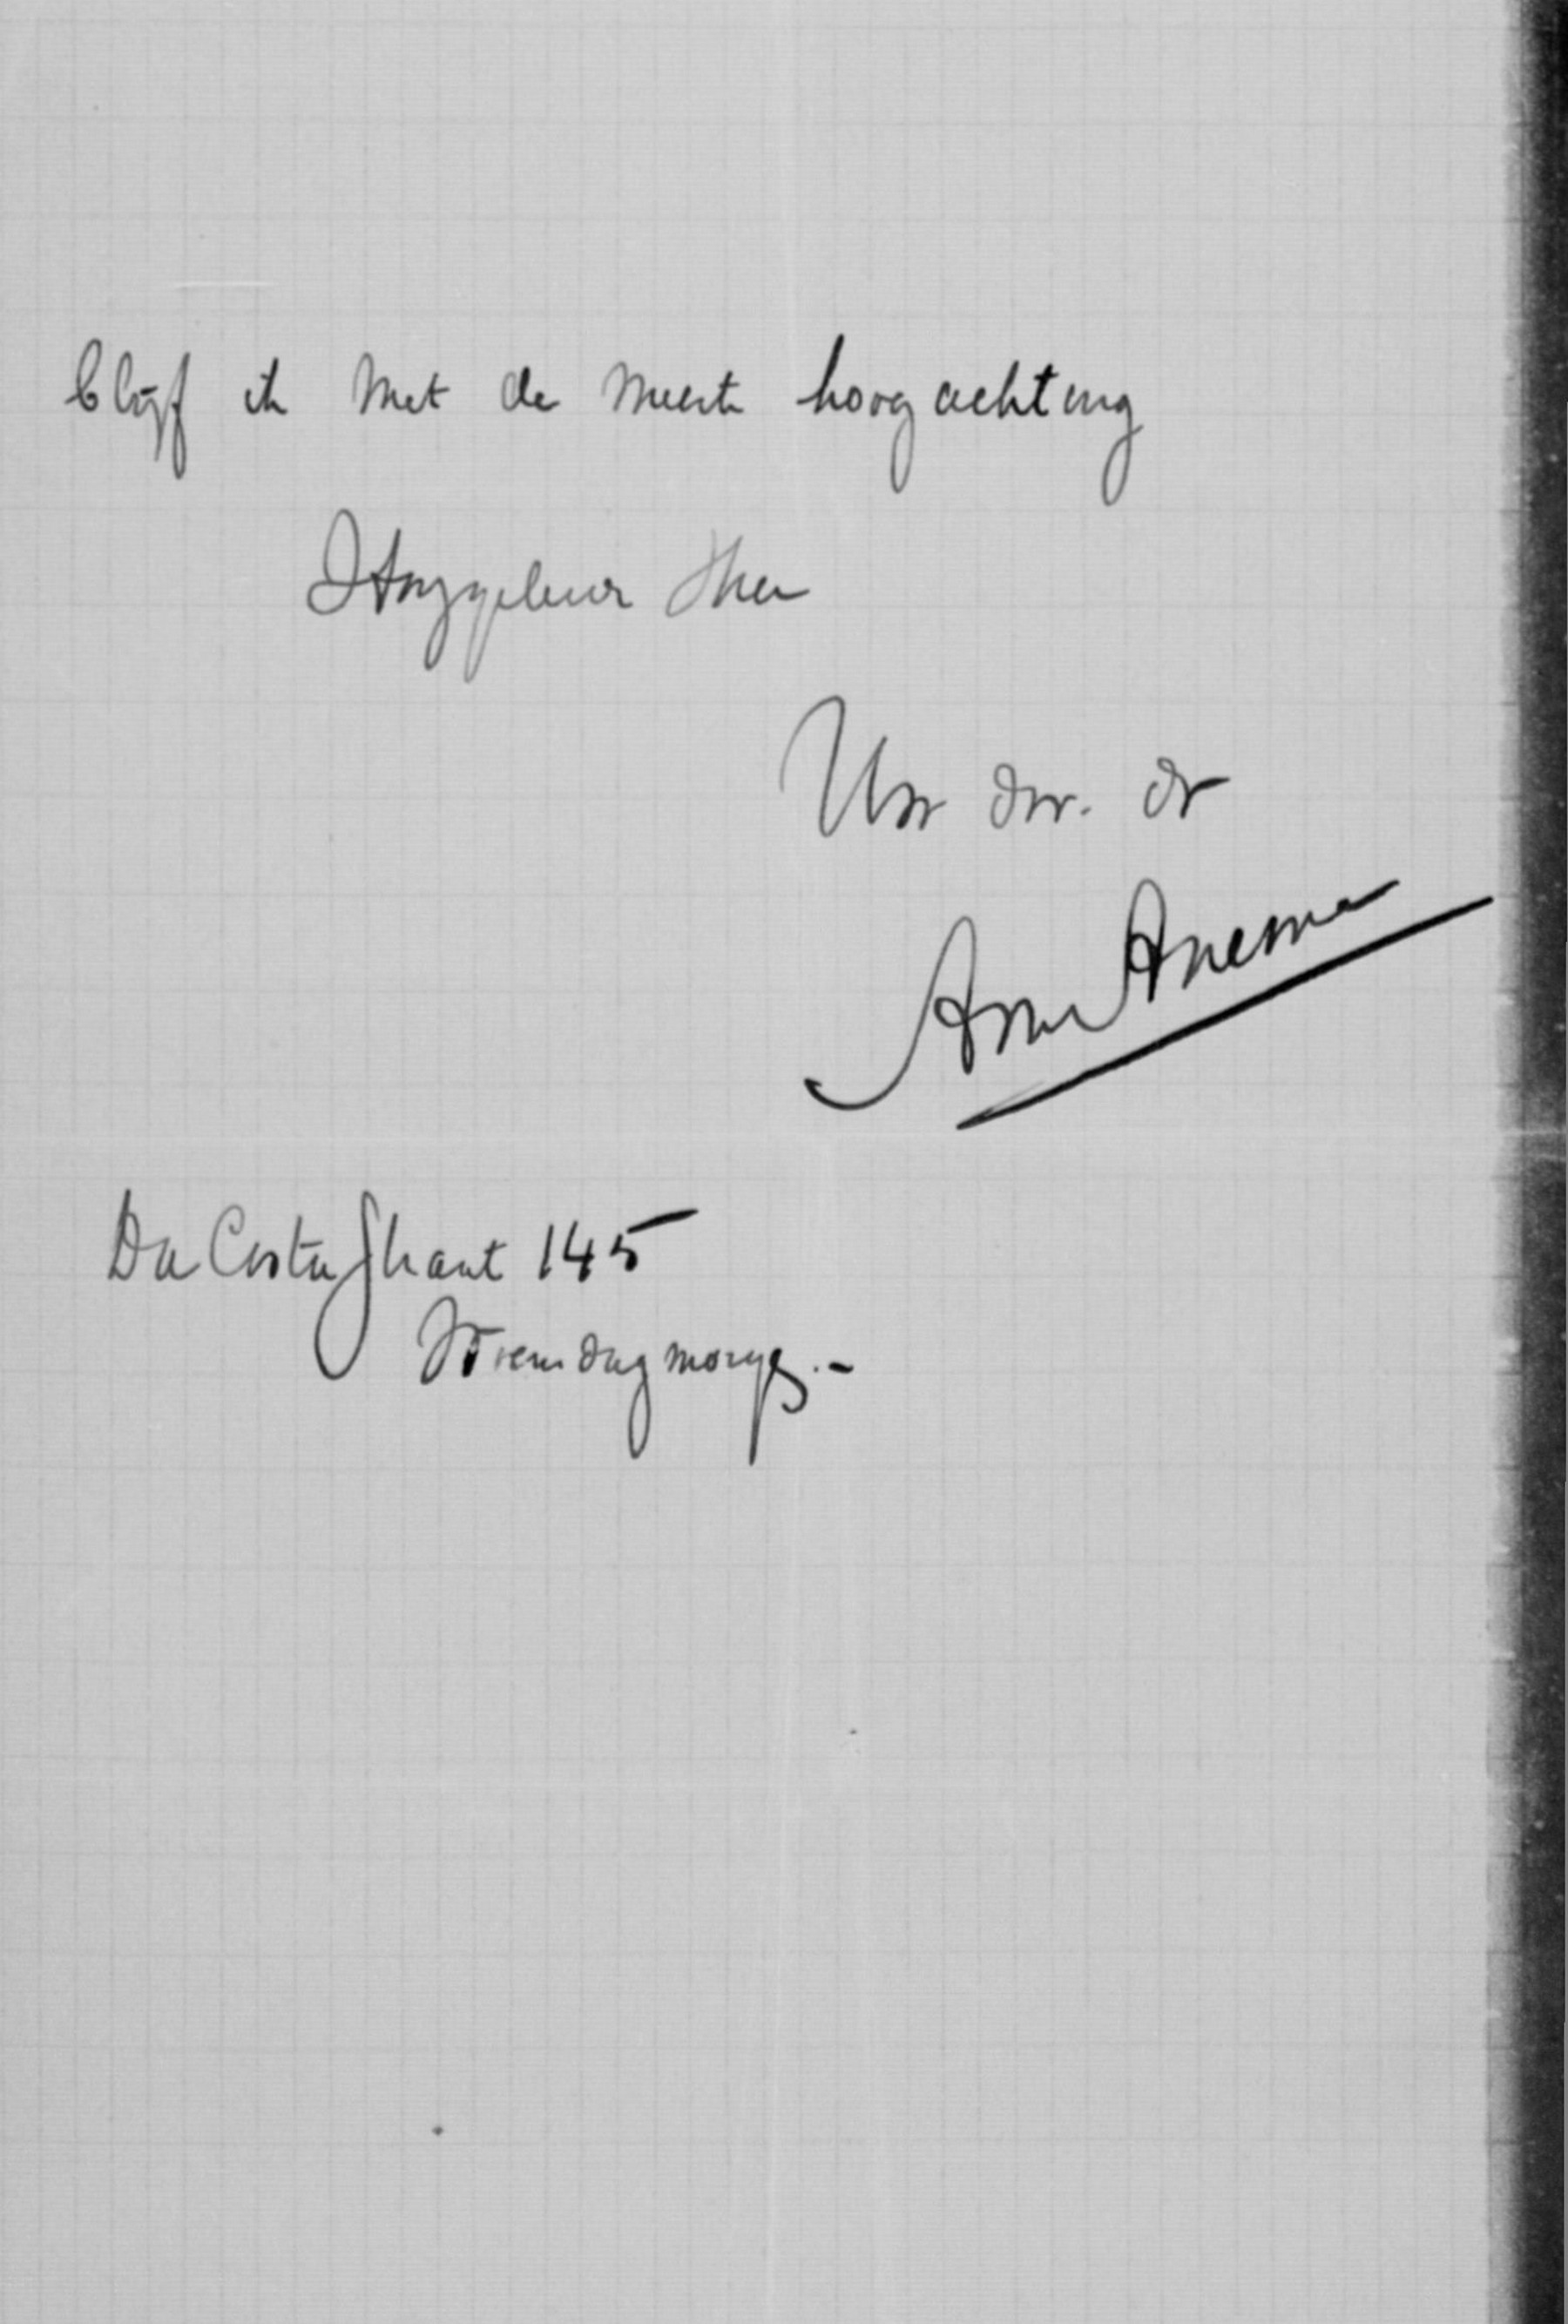 blijf ik met de meeste hoogachting
Hooggeleer Heer
Uw dw. dr
Anne Anema
Da Costa Straat 145
Woensdagmorgen.-